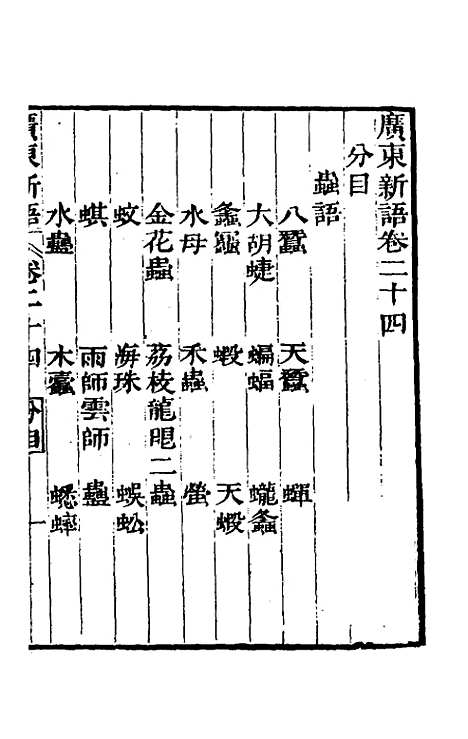 廣東新語卷二十四
分目
蟲語
八蠶 天蠶 蟬
大胡蜨 蝙蝠 蠬螽
螽蠠 蝦 天蝦
水母 禾蟲 螢
金花蟲 荔枝龍眼二蟲
蚊 海珠 蜈蚣
蜞 雨師雲師 蠱
水蠱 木蠹 蟋蟀
廣東新語 卷二十四 分目 一